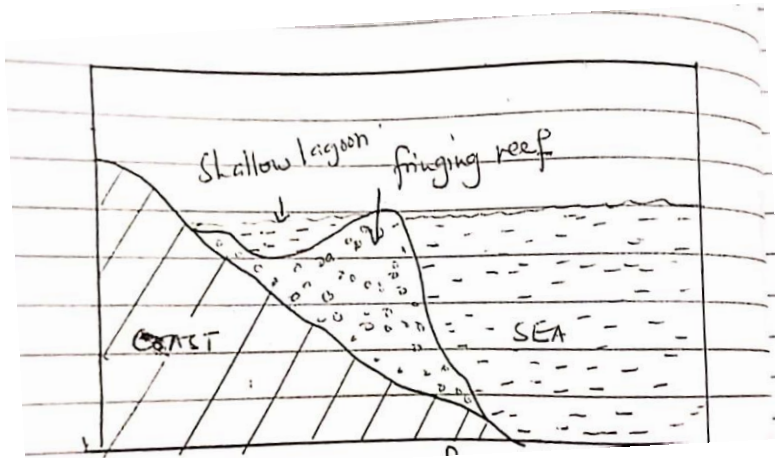 Shallow lagoon
fringing reef
COAST
SEA